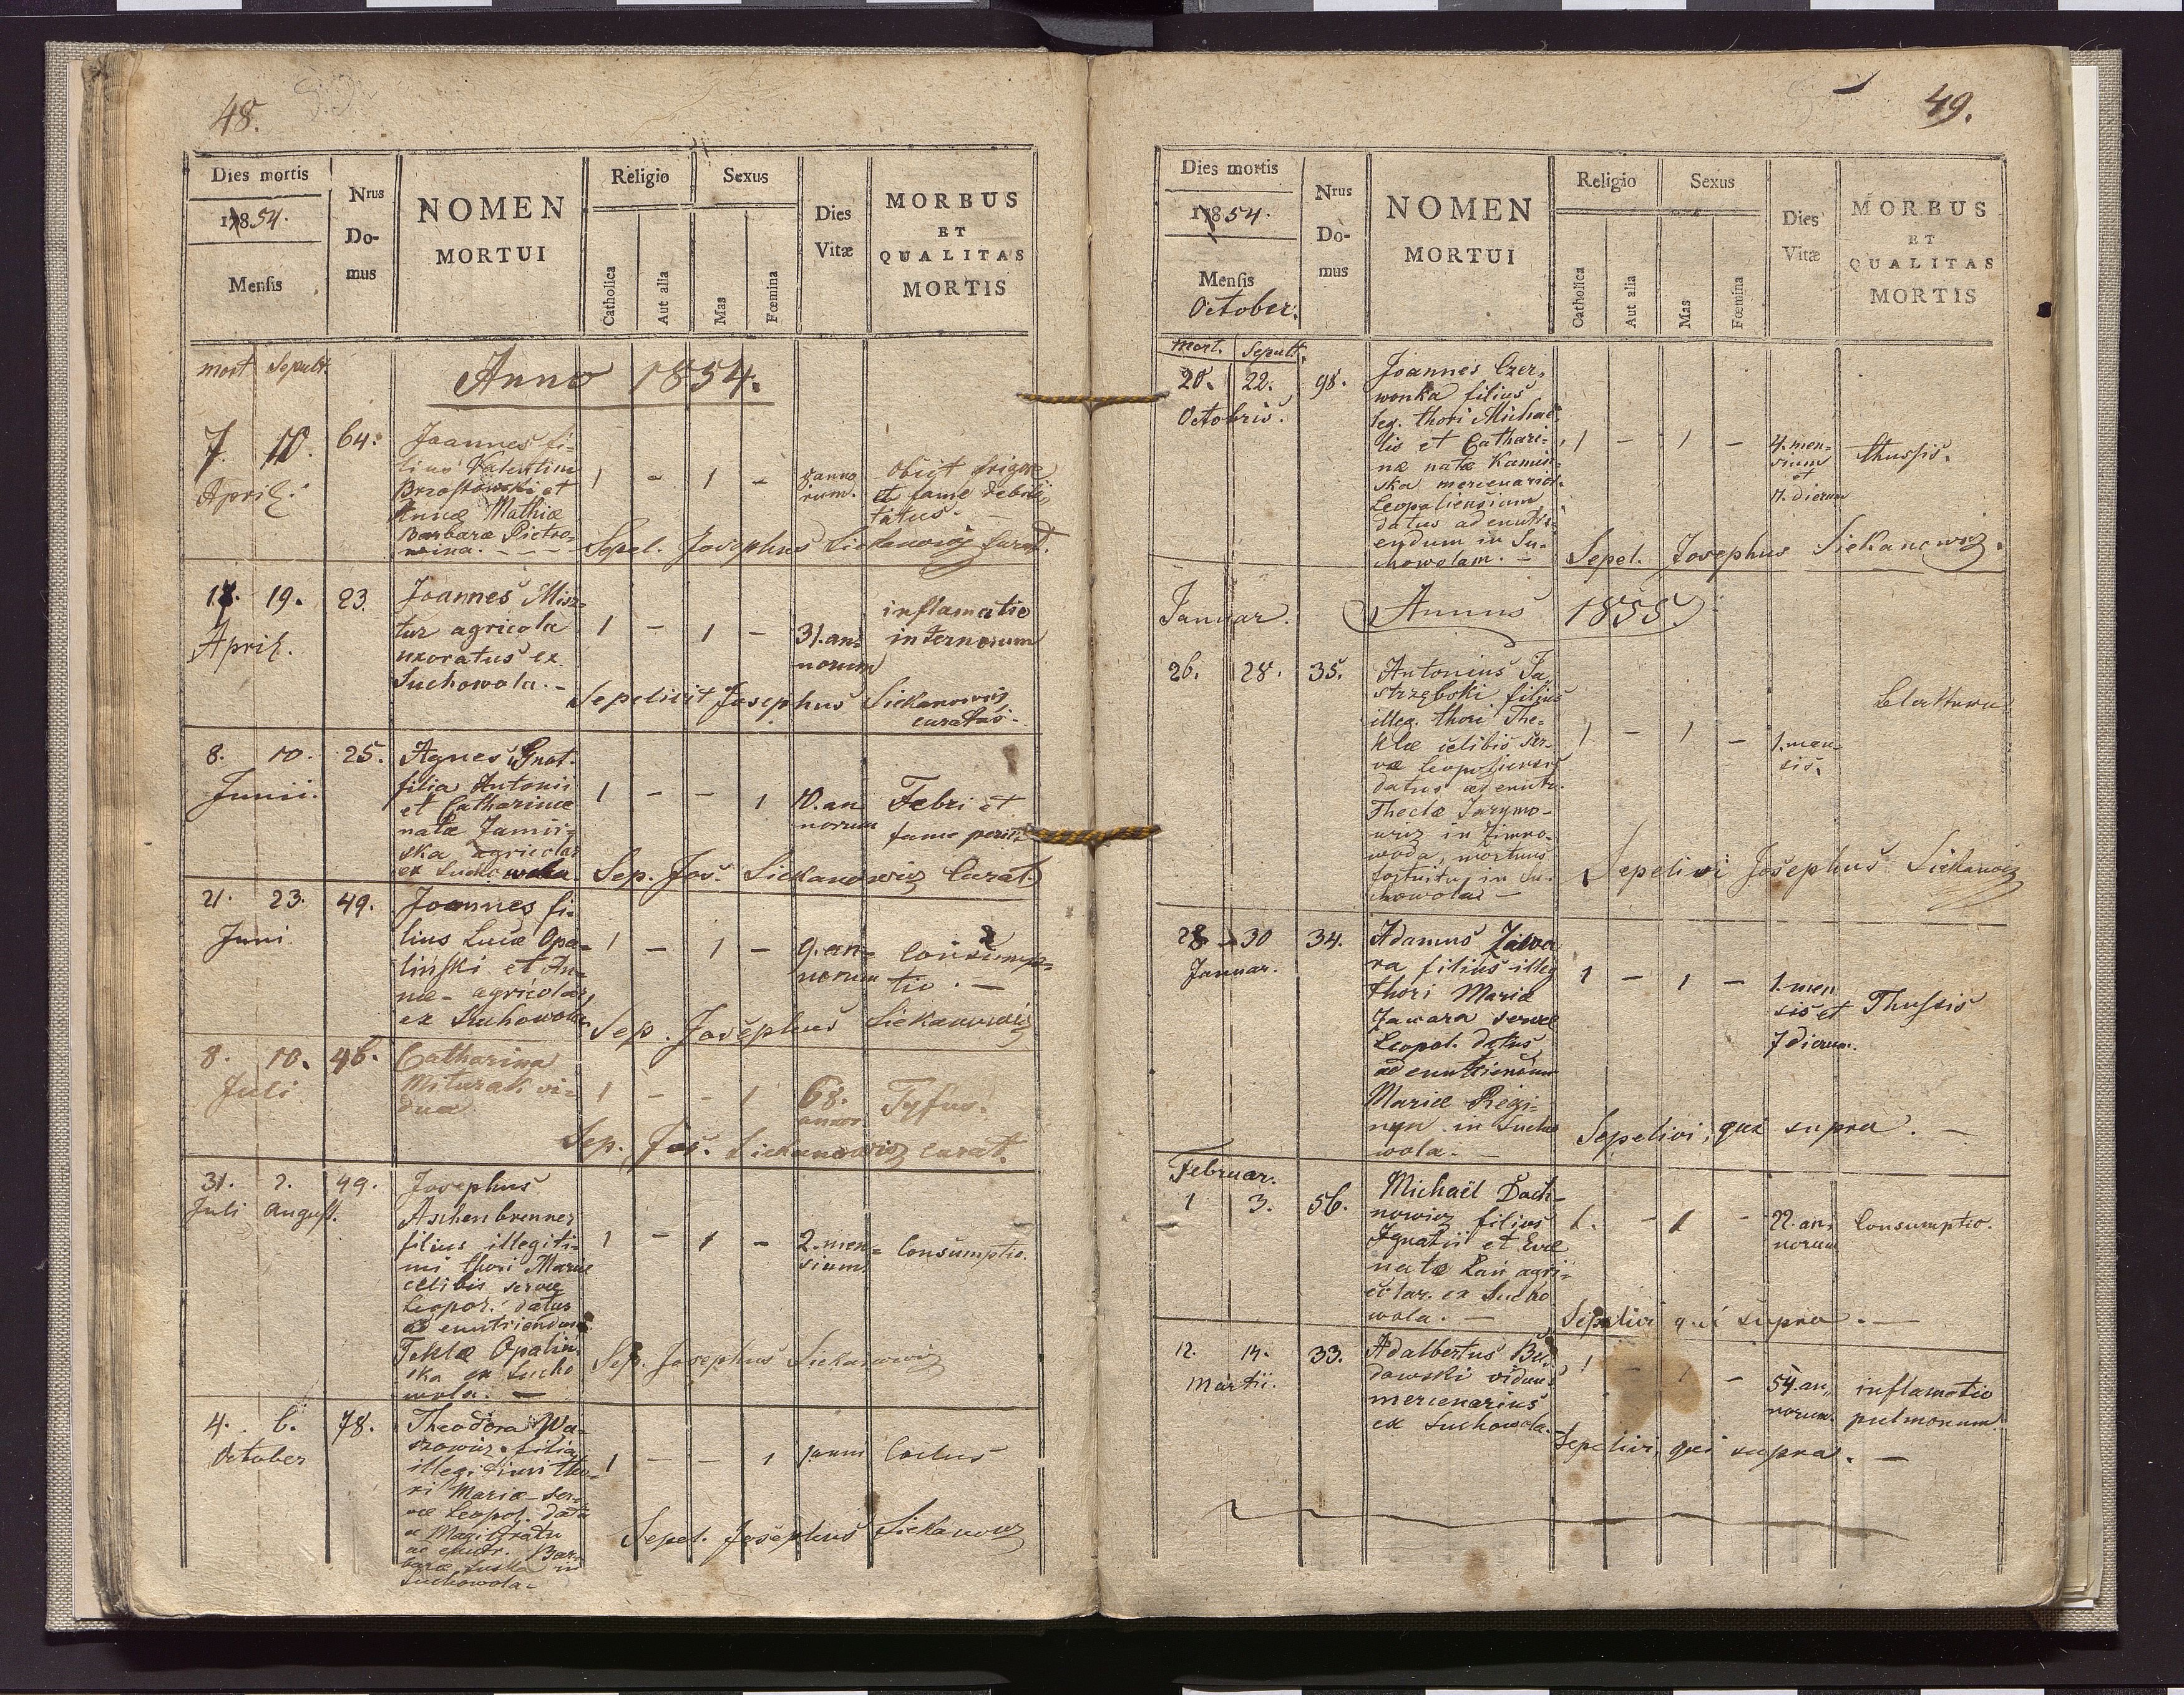 48.
Dies mortis
1854.
Mensis
Nrus
Do-
mus
NOMEN
MORTUI
Religio
Catholica
Aut alia
Sexus
Mas
Fœmina
Dies
Vitæ
MORBUS
ET
QUALITAS
MORTIS
mort Sepult.
Anno 1854.
7. 10. 64.
April.
Joannes fi-
lius Valentini
Brzostowski et
Annæ Mathiæ
Barbara Pietro-
1 - 1 -
8 anno
rum.
obiit frigore
et fame debili-
tatus.
Sepel. Josephus Siekanowicz Curat.
17. 19. 23.
April.
Joannes Misz-
tur agricola
uxoratus ex
Suchowola. -
1 - 1 -
31. an-
norum
inflamatio
internorum
Sepelivit Josephus Siekanowicz
curatus.
8. 10. 25.
Junii.
Agnes Gnot.
filia Antonii
et Catharinæ
natæ Jamir-
ska agricolar
ex Suchowola.
1 - - 1
10. an
norum
Febri et
fame periit
Sep. Jos. Siekanowicz Curat.
21. 23. 49.
Juni
Joannes fi-
lius Lucæ Opa-
liński et An-
næ - agricolar,
ex Suchowola
1 - 1 -
9. an-
norum
consump-
tio. -
Sep. Josephus Siekanowicz
8. 10. 46.
Juli
Catharina
Miturak vi-
dua
1 - - 1
68.
annor
Tyfus.
Sep. Jos. Siekanowicz curat.
31. 2. 49.
Juli August.
Josephus
Aschenbrenner
filius illegiti-
mi thori Mariæ
cælibis servæ
Leopol. datus
ad enutriendum
Teklæ Opaliń-
ska ex Sucho
wola. -
1 - 1 -
2. men-
sium.
Consumptio.
Sep. Josephus Siekanowicz
4. 6. 78.
October
Theodora Wa-
szowicz filia
illegitimi tho-
ri Maria ser-
væ Leopol. data
a Magistratu
ad enutr. Bar-
baræ in
Suchowola -
1 - - 1
1 anni
Sepel. Josephus Siekanowicz
49.
Dies mortis
1854.
Mensis
October.
Nrus
Do-
mus
NOMEN
MORTUI
Religio
Catholica
Aut alia
Sexus
Mas
Fœmina
Dies
Vitæ
MORBUS
ET
QUALITAS
MORTIS
Mort. Sepult.
20. 22. 98.
Octobris.
Joannes Czer-
wonka filius
leg. thori Michae-
lis et Cathari-
næ natæ Kamin-
ska mercenarior.
Leopoliensium
datus ad enutri-
endum in Su-
chowolam. -
1 - 1 -
4. men-
sium
et
dierum
thussis.
Sepel. Josephus Siekanowicz.
Januar. Annus 1855.
26. 28. 35.
Antonius Ja-
strzębski filius
illeg. thori The-
klæ cælibis ser-
væ Leopoliensis
datus ad enutr.
Theclæ Jarymo-
wicz in Zimno-
woda, mortuus
fortuitu in Su-
chowola -
1 - 1 -
1. men-
sis.
Sepelivi Josephus Siekanowicz
28 30 34.
Januar.
Adamus Jawa
ra filius illeg
thori Mariæ
Jawara servæ
Leopol. datus
ad enutriendum
Mariæ Piegi-
in Sucho
wola. -
1 - 1 -
1. men
sis et
7 dierum.
Thussis
Sepelivi, qui supra. -
Februar.
1 3. 56.
Michaël Dach-
nowicz filius
Ignatii et Evæ
natæ Łań agri-
colar. ex Sucho
wola. -
1. - 1 -
22. an-
norum
Consumptio.
Sepelivi qui supra. -
12. 14. 33.
Martii.
Adalbertus Bu-
dowski viduus
mercenarius
ex Suchowola.
1 - 1 -
54. an-
norum.
inflamatio
pulmonum
Sepelivi, qui supra. -